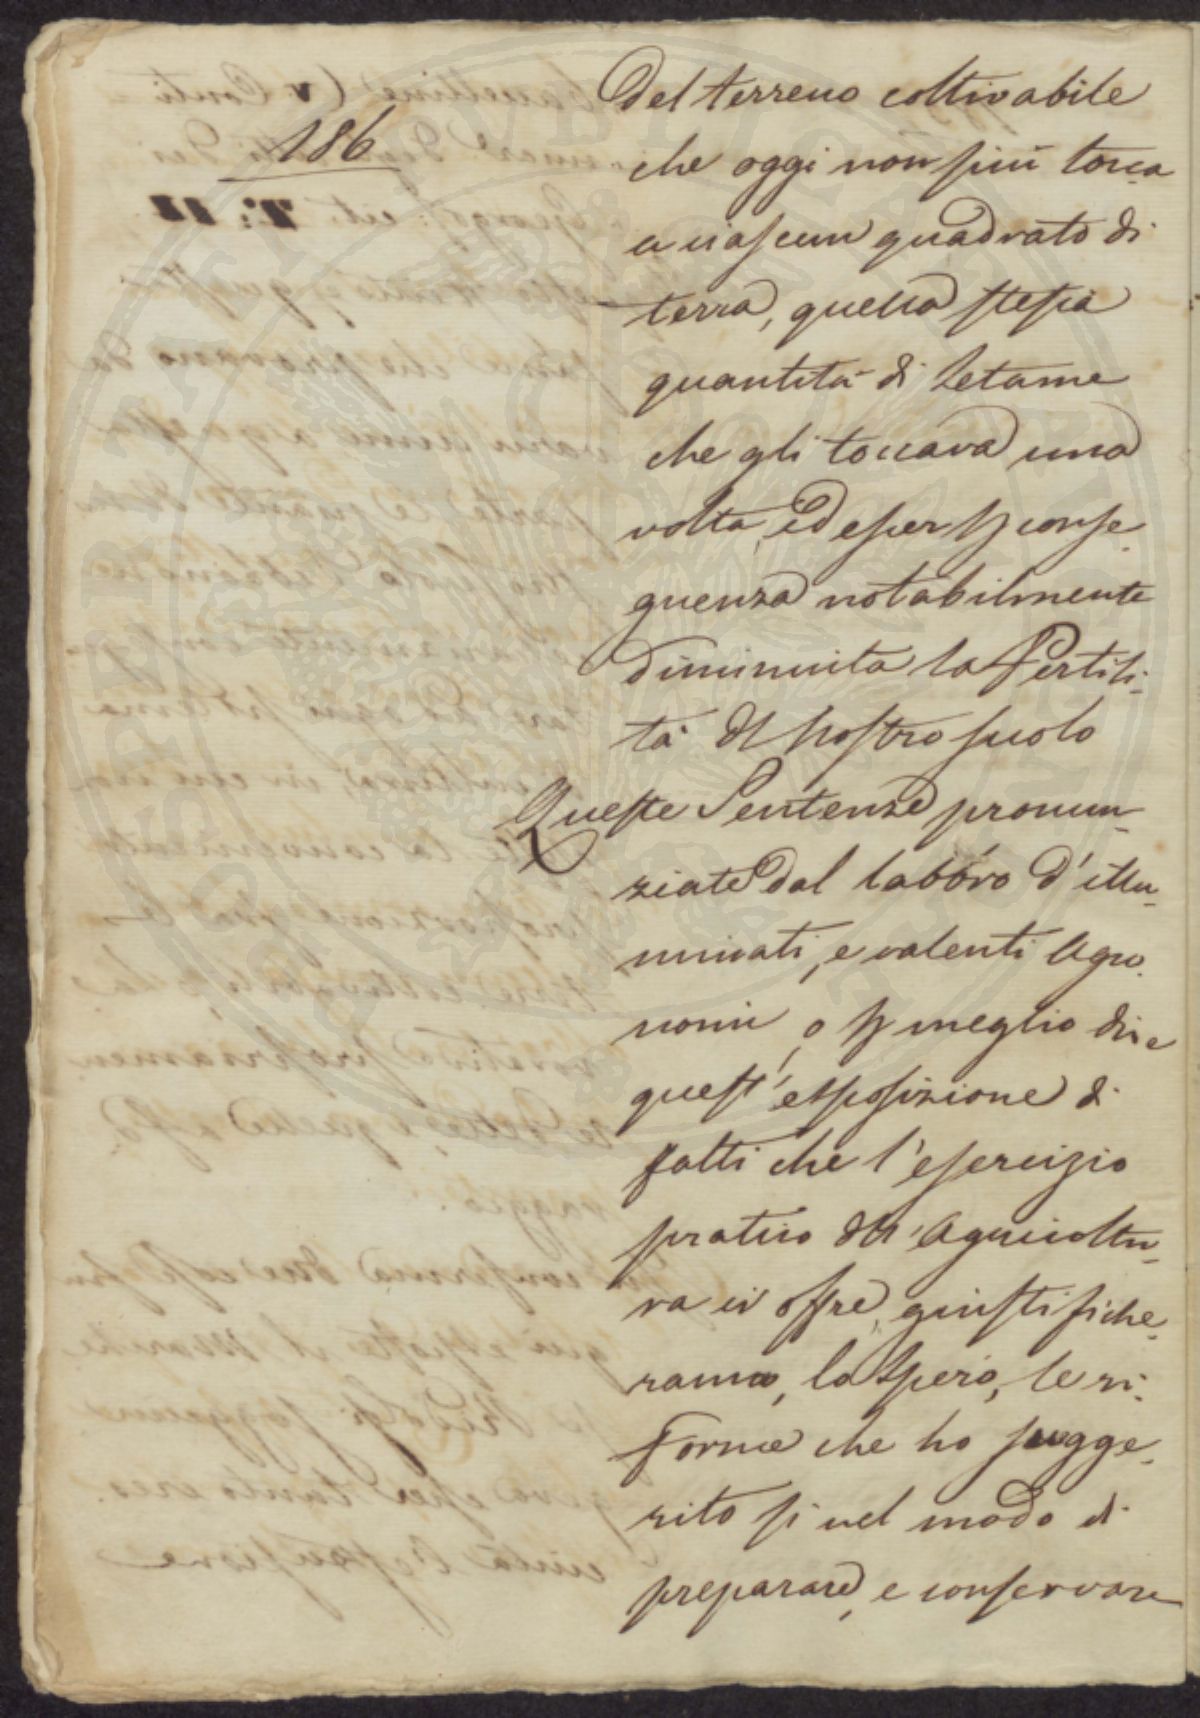 186
del terreno coltivabile
che oggi non più tocca
a ciascun quadrato di
terra, quella stessa
quantità di Letame
che gli toccava una
volta, ed esser p conse-
guenza notabilmente
diminuita la Fertili-
tà del nostro suolo
Queste Sentenze pronun-
ziate dal labbro d'illu-
minati, e valenti Agro-
nomi, o p meglio dire
quest'esposizione di
fatti che l'esercizio
pratico dell'Agricoltu-
ra ci offre, giustifiche-
ranno, lo spero, le ri-
forme che ho sugge-
rito sì nel modo di
preparare, e conservare